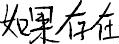 如果存在